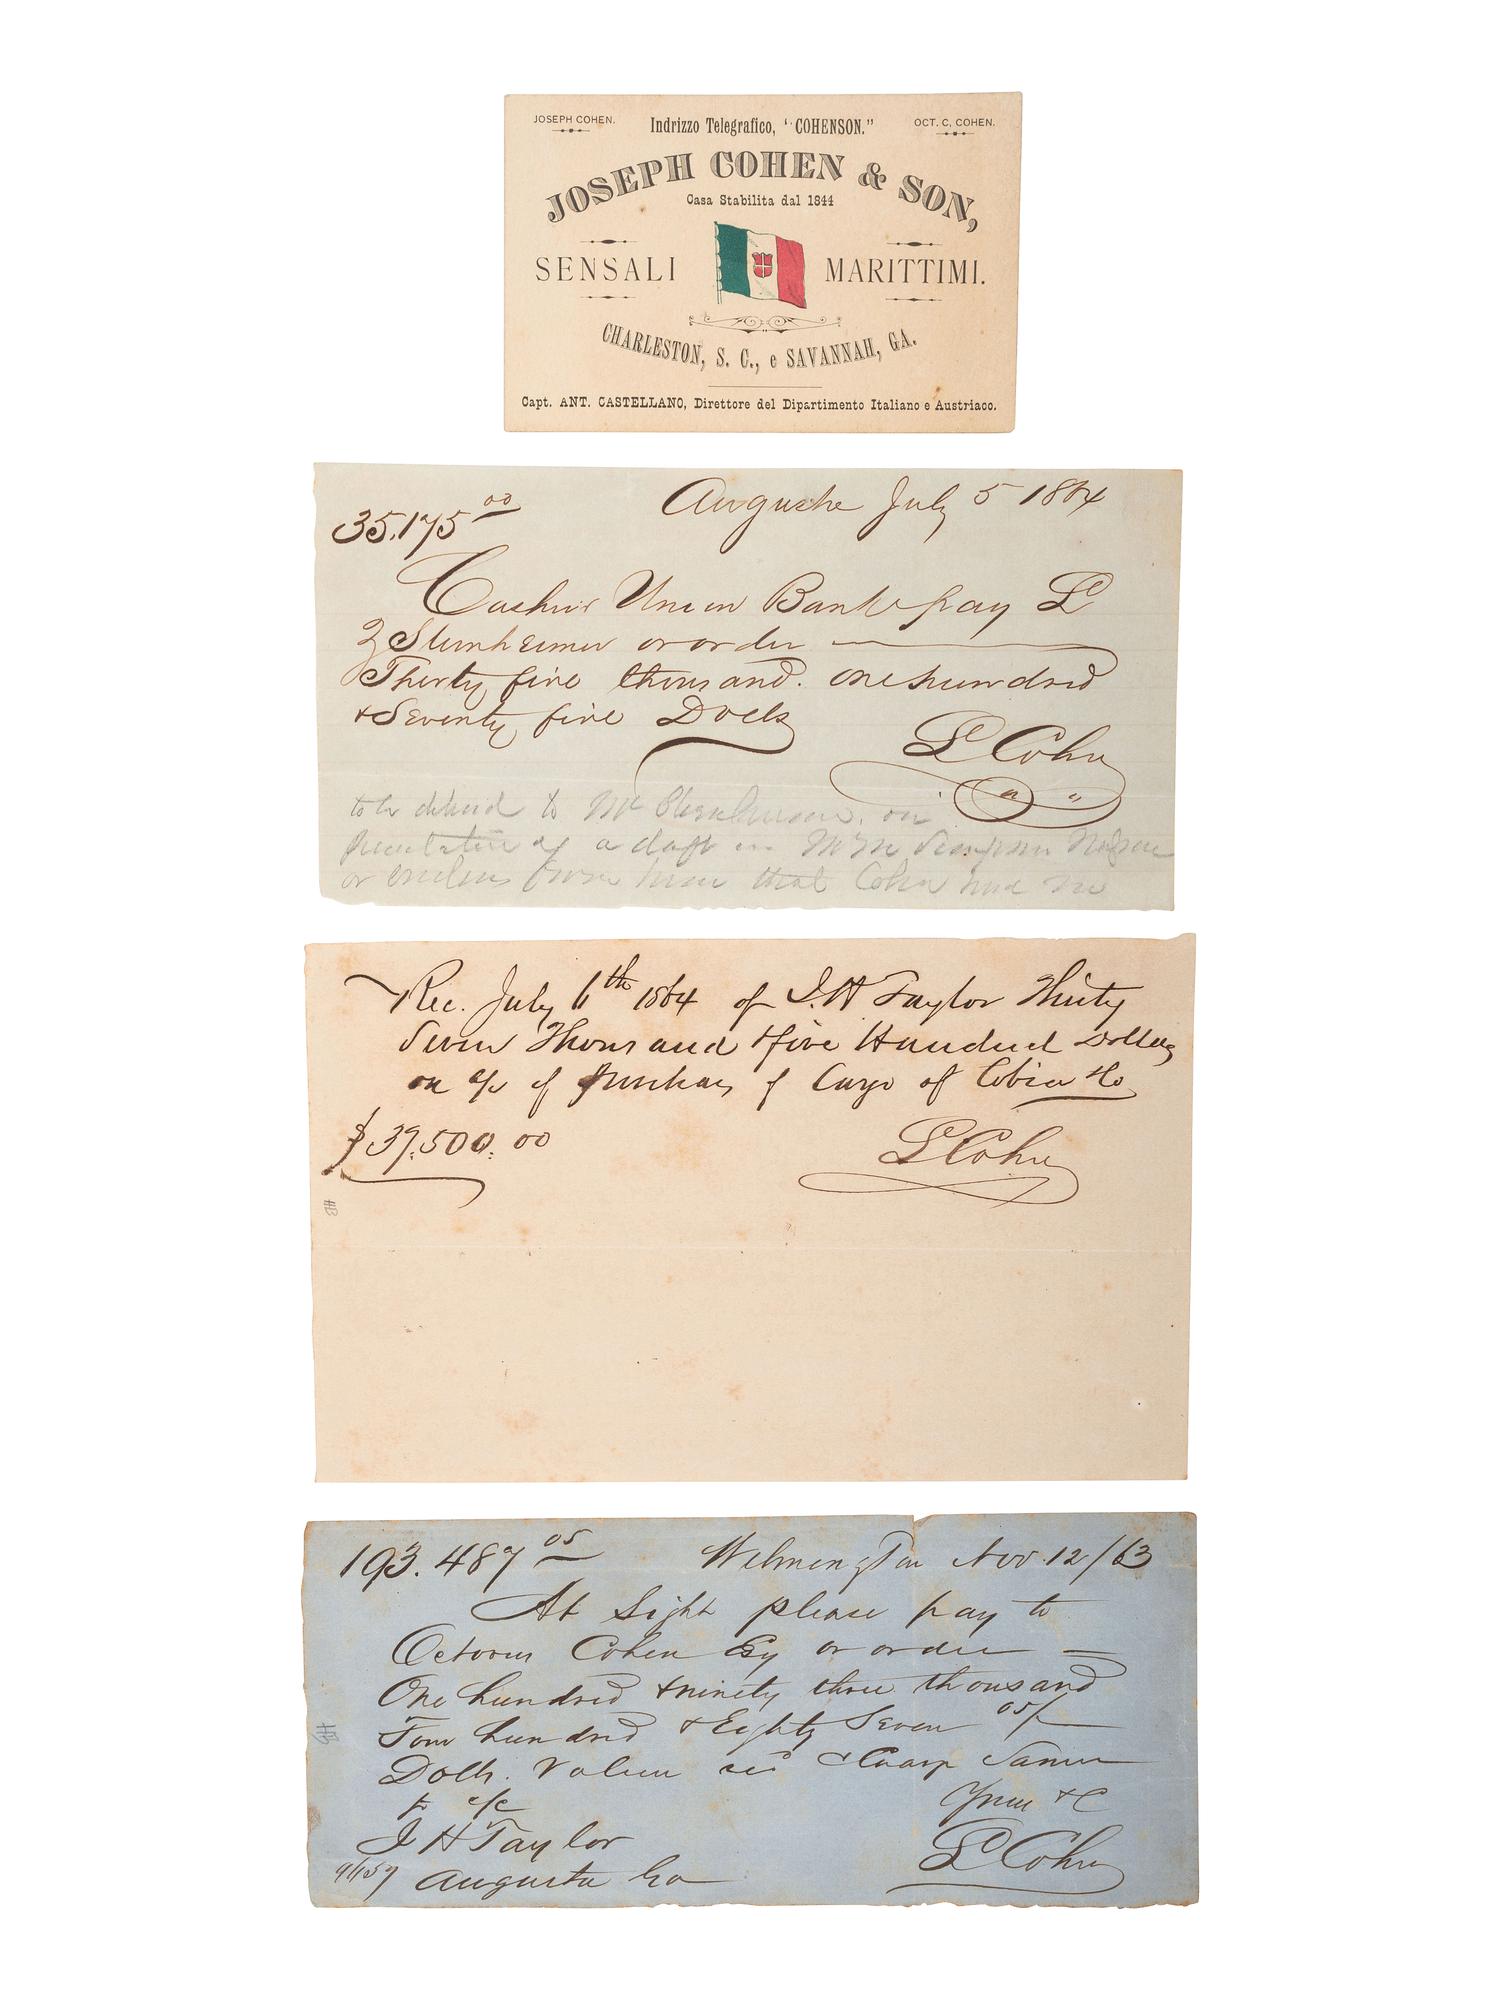 JOSEPH COHEN.
Indrizzo Telegrafico, "COHENSON."
OCT. C, COHEN.
JOSEPH COHEN & SON,
Casa Stabilita dal 1844
SENSALI MARITTIMI.
CHARLESTON, S. C., e SAVANNAH, GA.
Capt. ANT. CASTELLANO, Direttore del Dipartimento Italiano e Austriaco.
35.175 00 Augusta July 5 1864
Cashier Union Bank pay L
Z Steinheimer or order
Thirty five thousand. one hundred
& Seventy five Dolls
L Cohen
to Mr
of a draft on
or from him that Cohen had no
Rec. July 6th 1864 of J. H Taylor Thirty
Seven Thousand & five Hundred Dollars
on a/c of purchase of Cargo of Cobia & Co
$37,500.00
L Cohen
#3
193.487 05 Wilmington Nov. 12/63
At Sight please pay to
Octavus Cohen Esq or order
One hundred & ninety three thousand
Four hundred & Eighty Seven 05/
Dolls. Value & Charge Same
to a/c Yours &C
J H Taylor L Cohen
Augusta Ga